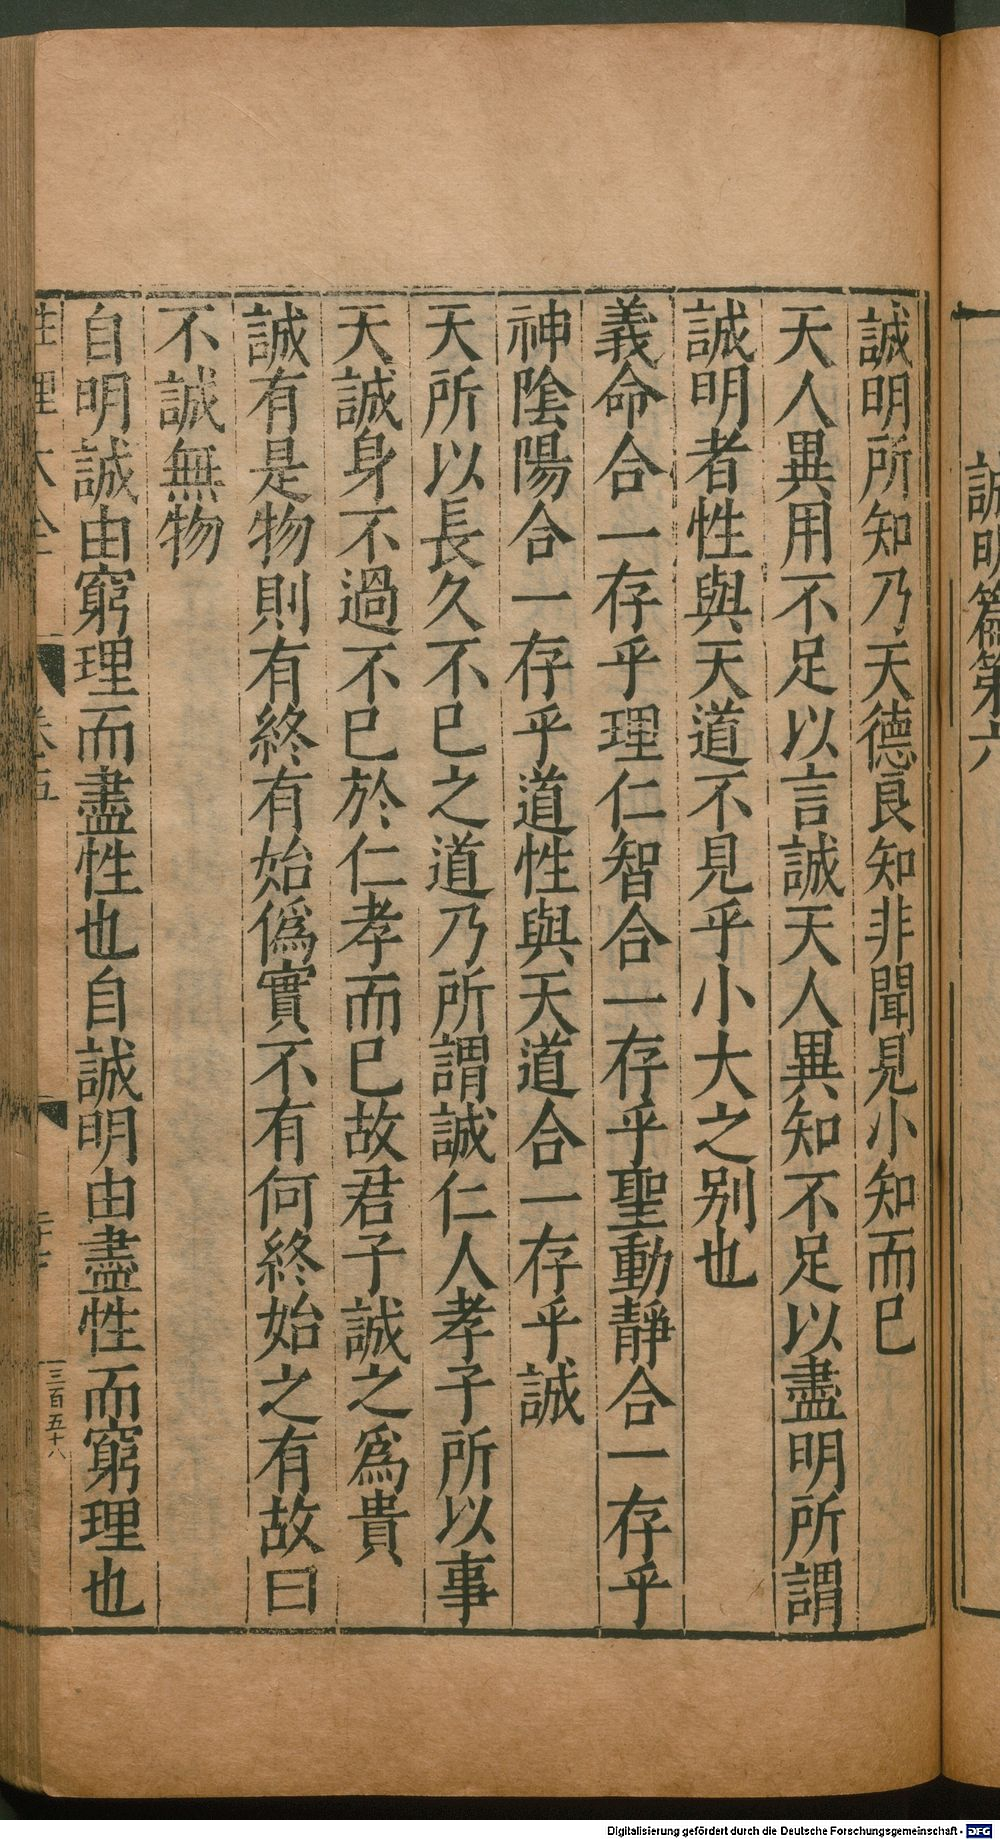 誠明篇第六
誠明所知乃天德良知非聞見小知而已
天人異用不足以言誠天人異知不足以盡明所謂
誠明者性與天道不見乎小大之别也
義命合一存乎理仁智合一存乎聖動靜合一存乎
神陰陽合一存乎道性與天道合一存乎誠
天所以長久不已之道乃所謂誠仁人孝子所以事
天誠身不過不已於仁孝而已故君子誠之爲貴
誠有是物則有終有始僞實不有何終始之有故曰
不誠無物
自明誠由窮理而盡性也自誠明由盡性而窮理也
性理大全
卷五
三百五十八
Digitalisierung gefördert durch die Deutsche Forschungsgemeinschaft - DFG